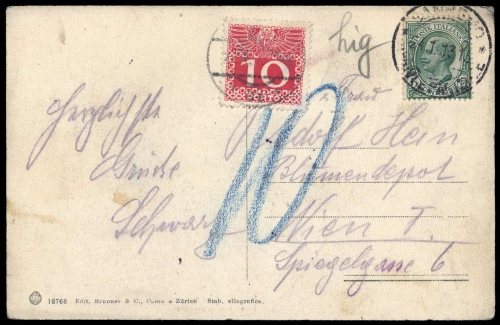 hig
10
PORTO
10
Herzlichste
Grüße
Schwarz
Frau
Adolf Hein
Blumendepot
Wien I.
Spiegelgasse 6
16766 Edit. Brunner & C., Como e Zürich Stab. eliografico.